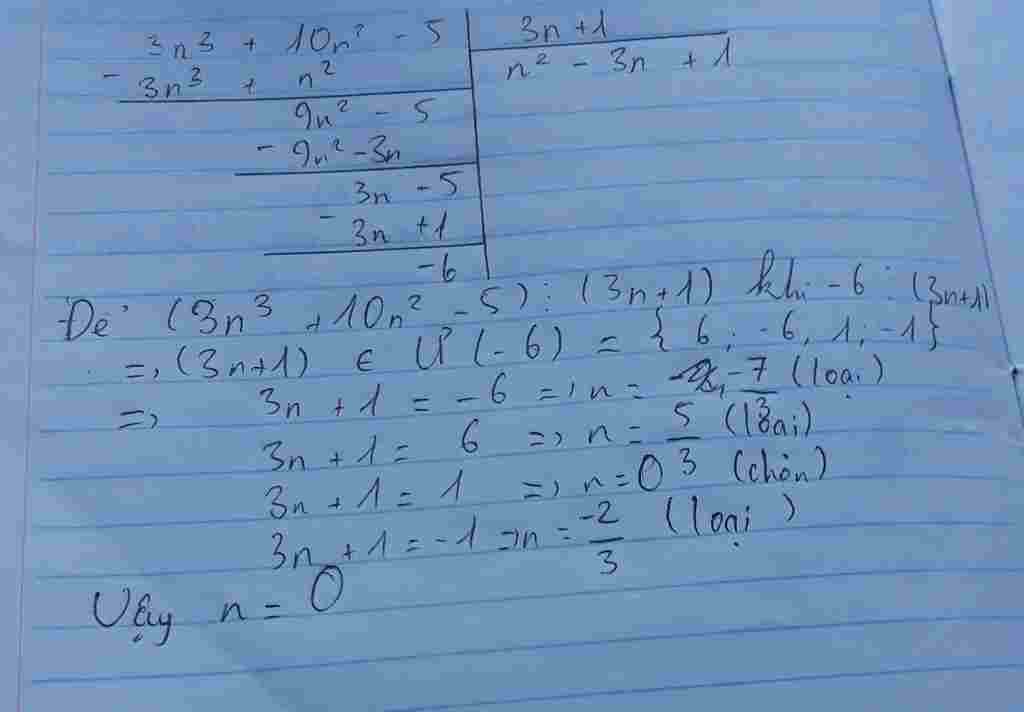 3n³ + 10n² - 5 | 3n + 1
- 3n³ + n² | n² - 3n + 1
9n² - 5
- 9n² - 3n
3n - 5
- 3n + 1
-6
Để (3n³ + 10n² - 5) : (3n+1) khi -6 : (3n+1)
=> (3n+1) ∈ Ư (-6) = { 6; -6, 1; -1}
=> 3n + 1 = -6 => n = -7/3 (loại)
3n + 1 = 6 => n = 5/3 (loại)
3n + 1 = 1 => n = 0 (chọn)
3n + 1 = -1 => n = -2/3 (loại)
Vậy n = 0